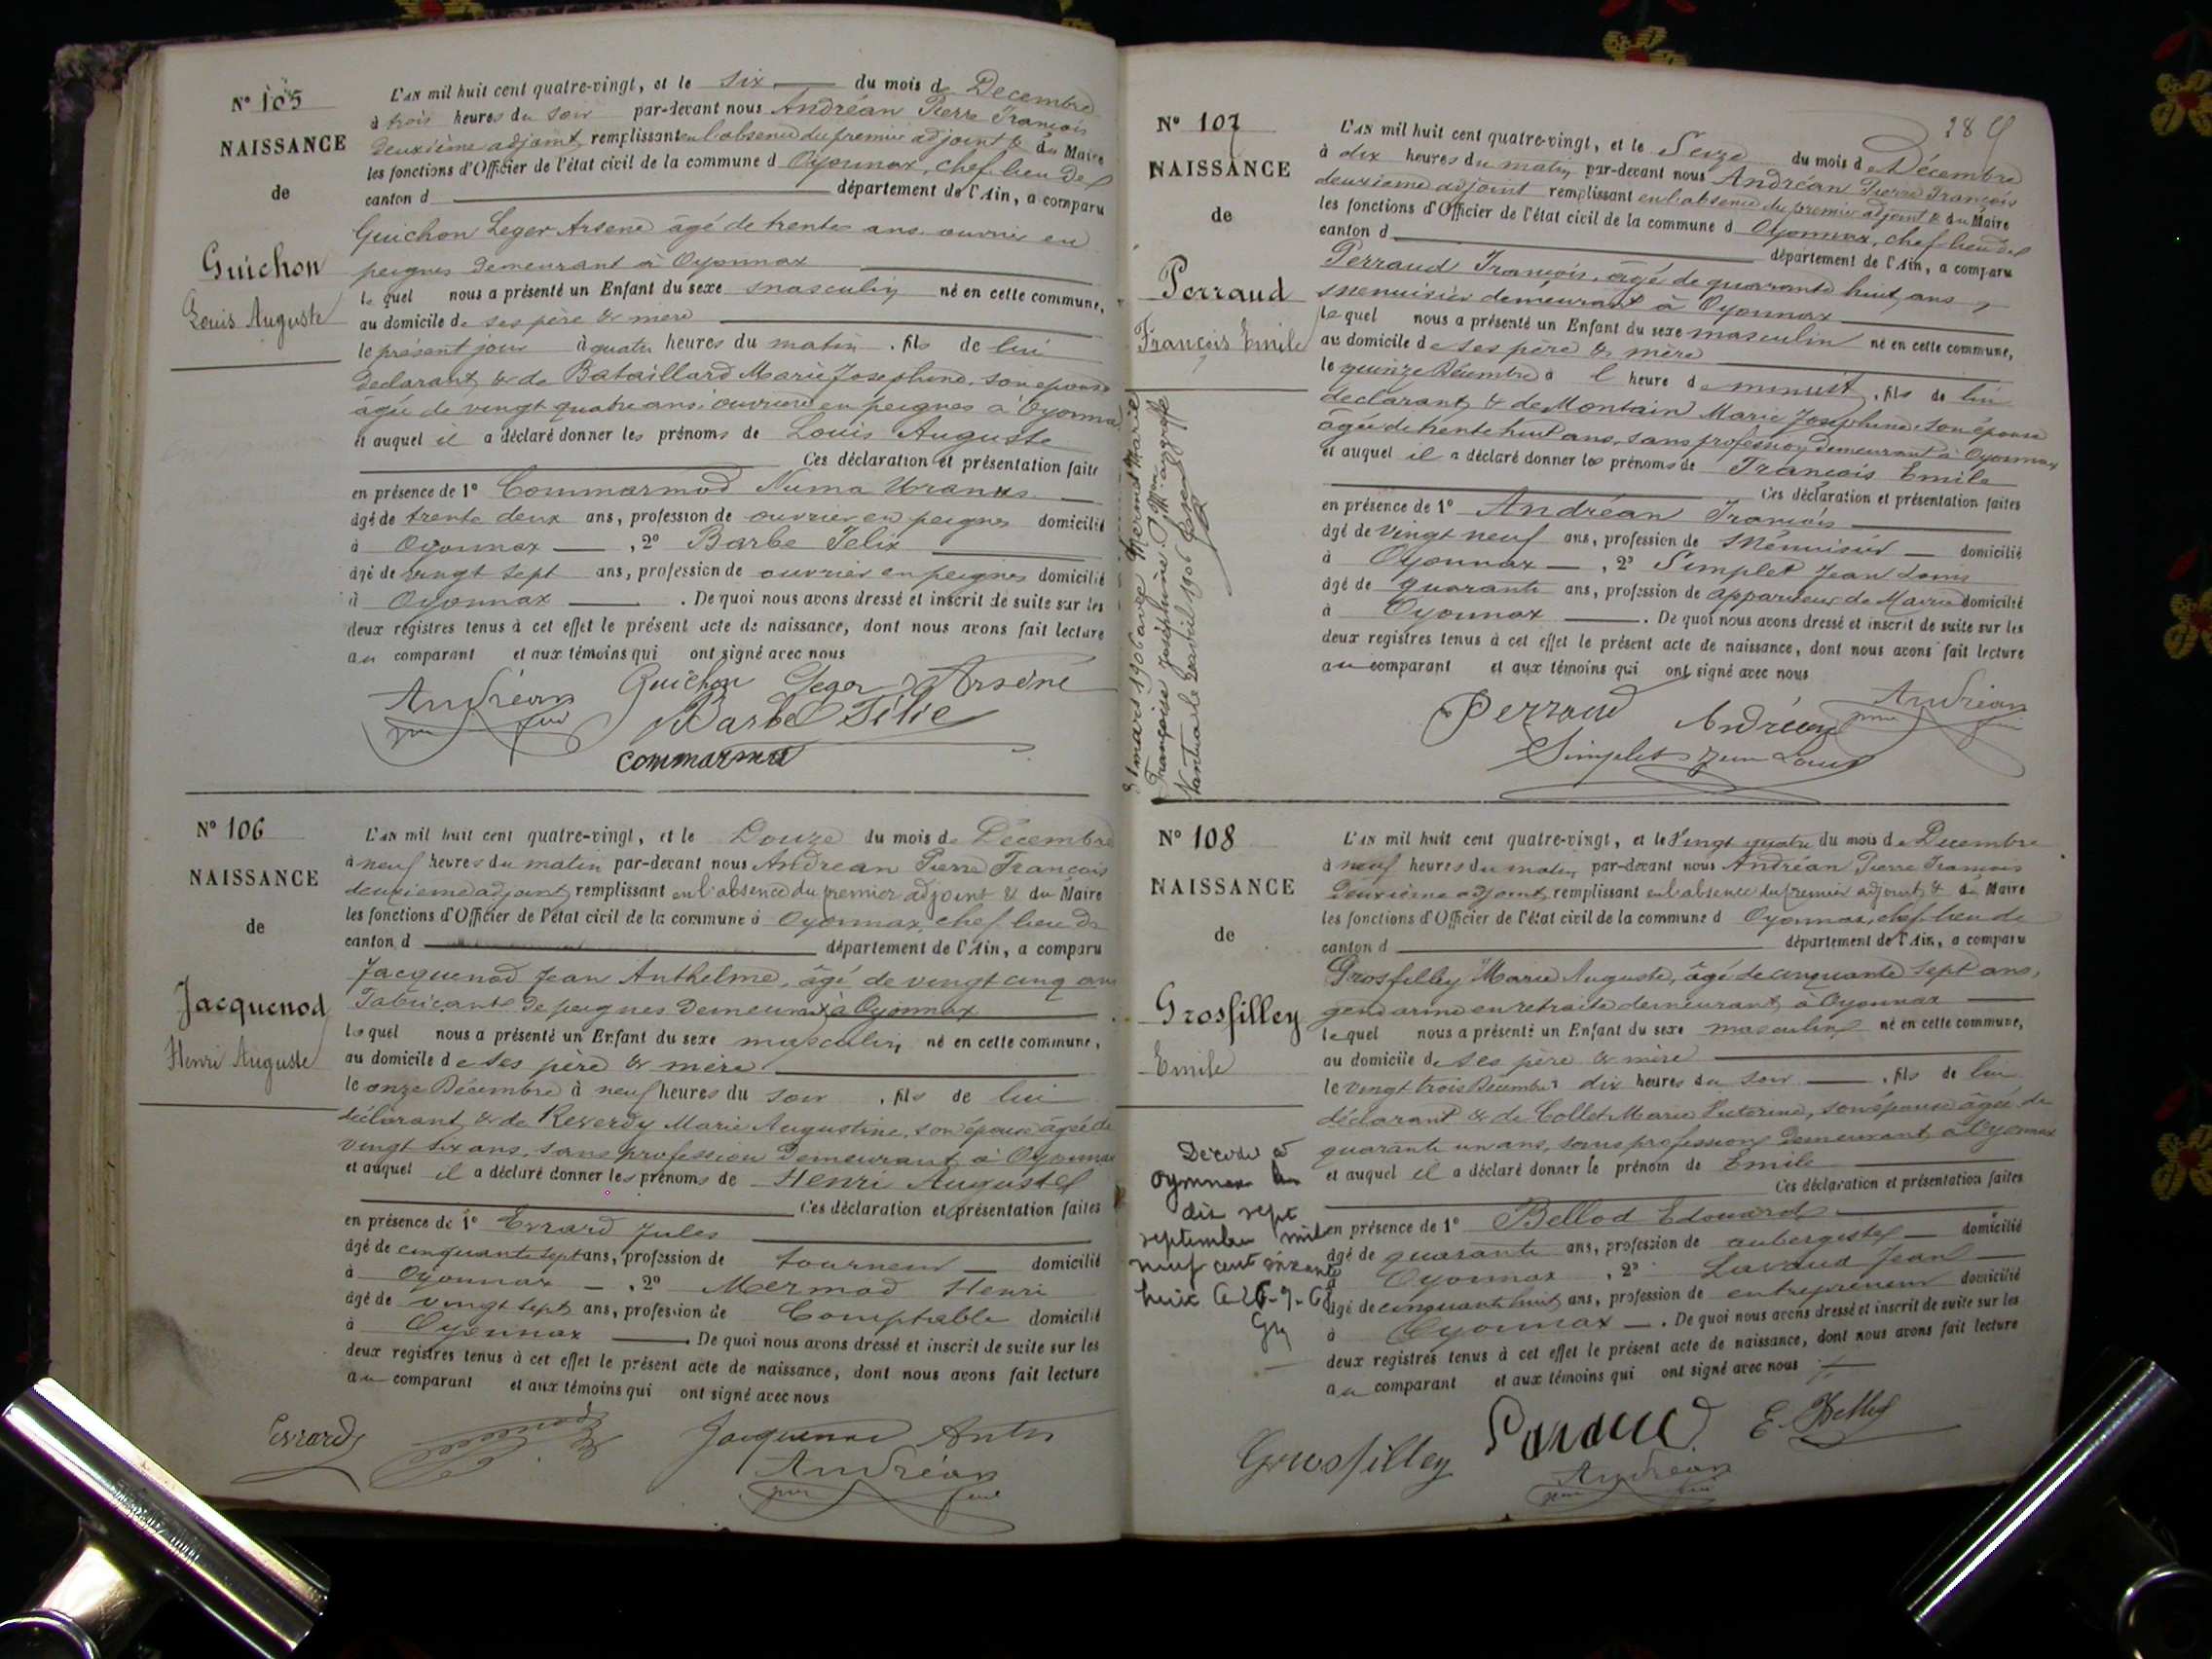 N° 105
NAISSANCE
de
Guichon
Louis Auguste
L'AN mil huit cent quatre-vingt, et le six du mois de Decembre
à trois heures du soir par-devant nous Andréan Pierre François
deuxième adjoint, remplissant en l'absence du premier adjoint & du Maire
les fonctions d'Officier de l'état civil de la commune d Oyonnax, chef lieu de
canton d département de l'Ain, a comparu
Guichon Leger Arsene âgé de trente ans, ouvrier en
peignes demeurant à Oyonnax
le quel nous a présenté un Enfant du sexe masculin né en cette commune,
au domicile de ses père & mère
le présent jour à quatre heures du matin, fils de lui
declarant, & de Bataillard Marie Josephine, son epouse
âgée de vingt quatre ans, ouvriere en peignes à Oyonnax
et auquel il a déclaré donner les prénoms de Louis Auguste
Ces déclaration et présentation faite
en présence de 1° Commarmod Numa Uranus
âgé de trente deux ans, profession de ouvrier en peignes domicilié
à Oyonnax, 2° Barbe Felix
âgé de vingt sept ans, profession de ouvrier en peignes domicilié
à Oyonnax. De quoi nous avons dressé et inscrit de suite sur les
deux registres tenus à cet effet le présent acte de naissance, dont nous avons fait lecture
au comparant et aux témoins qui ont signé avec nous
Andréan Guichon Leger Arsène
Barbe Félix
Commarmod
N° 106
NAISSANCE
de
Jacquenod
Henri Auguste
L'AN mil huit cent quatre-vingt, et le Douze du mois de Décembre
à neuf heures du matin par-devant nous Andréan Pierre François
deuxieme adjoint, remplissant en l'absence du premier adjoint & du Maire
les fonctions d'Officier de l'état civil de la commune d Oyonnax, chef lieu de
canton d département de l'Ain, a comparu
Jacquenod Jean Anthelme, âgé de vingt cinq ans
Fabricant de peignes demeurant à Oyonnax
le quel nous a présenté un Enfant du sexe masculin né en cette commune,
au domicile de ses père & mère
le onze Décembre à neuf heures du soir, fils de lui
déclarant & de Reverdy Marie Augustine, son épouse âgée de
vingt six ans, sans profession demeurant à Oyonnax
et auquel il a déclaré donner les prénoms de Henri Auguste
Ces déclaration et présentation faites
en présence de 1° Evrard Jules
âgé de cinquante sept ans, profession de tourneur domicilié
à Oyonnax, 2° Mermod Henri
âgé de vingt sept ans, profession de Comptable domicilié
à Oyonnax. De quoi nous avons dressé et inscrit de suite sur les
deux registres tenus à cet effet le présent acte de naissance, dont nous avons fait lecture
au comparant et aux témoins qui ont signé avec nous
Evrard Jacquenod Anth
Andréan
N° 107
NAISSANCE
de
Perraud
François Emile
31 mars 1906 avec Mermet Marie
Françoise Joséphine
Nantua le avril 1906
L'AN mil huit cent quatre-vingt, et le Seize du mois de Décembre
à dix heures du matin par-devant nous Andréan Pierre François
deuxieme adjoint remplissant en l'absence du premier adjoint & du Maire
les fonctions d'Officier de l'état civil de la commune d Oyonnax, chef lieu de
canton d département de l'Ain, a comparu
Perraud François, âgé de quarante huit ans,
menuisier demeurant à Oyonnax
le quel nous a présenté un Enfant du sexe masculin né en cette commune,
au domicile de ses père & mère
le quinze Décembre à l heure de minuit, fils de lui
declarant, & de Montain Marie Josephine, son épouse
âgée de trente huit ans, sans profession demeurant à Oyonnax
et auquel il a déclaré donner les prénoms de François Emile
Ces déclaration et présentation faites
en présence de 1° Andréan François
âgé de vingt neuf ans, profession de Ménuisier domicilié
à Oyonnax, 2° Simplet Jean Louis
âgé de quarante ans, profession de appariteur de Mairie domicilié
à Oyonnax. De quoi nous avons dressé et inscrit de suite sur les
deux registres tenus à cet effet le présent acte de naissance, dont nous avons fait lecture
au comparant et aux témoins qui ont signé avec nous
Perraud Andréan Andréan
Simplet Jean Louis
N° 108
NAISSANCE
de
Grosfilley
Emile
Décédé à
Oyonnax le
dix sept
septembre mil
neuf cent soixante
huit
L'AN mil huit cent quatre-vingt, et le Vingt quatre du mois de Decembre
à neuf heures du matin, par-devant nous Andréan Pierre François
Deuxième adjoint, remplissant en l'absence du premier adjoint & du Maire
les fonctions d'Officier de l'état civil de la commune d Oyonnax, chef lieu de
canton d département de l'Ain, a comparu
Grosfilley Marie Auguste, âgé de cinquante sept ans,
gendarme en retraite demeurant à Oyonnax
le quel nous a présenté un Enfant du sexe masculin né en cette commune,
au domicile de ses père & mère
le vingt trois Decembre dix heures du soir, fils de lui
déclarant & de Collet Marie Victorine, son épouse âgée de
quarante un ans, sans profession demeurant à Oyonnax
et auquel il a déclaré donner le prénom de Emile
Ces déclaration et présentation faites
en présence de 1° Bellod Edouard
âgé de quarante ans, profession de aubergiste domicilié
à Oyonnax, 2° Lavaud Jean
âgé de cinquante huit ans, profession de entrepreneur domicilié
à Oyonnax. De quoi nous avons dressé et inscrit de suite sur les
deux registres tenus à cet effet le présent acte de naissance, dont nous avons fait lecture
au comparant et aux témoins qui ont signé avec nous
Grosfilley Lavaud E. Bellod
Andréan